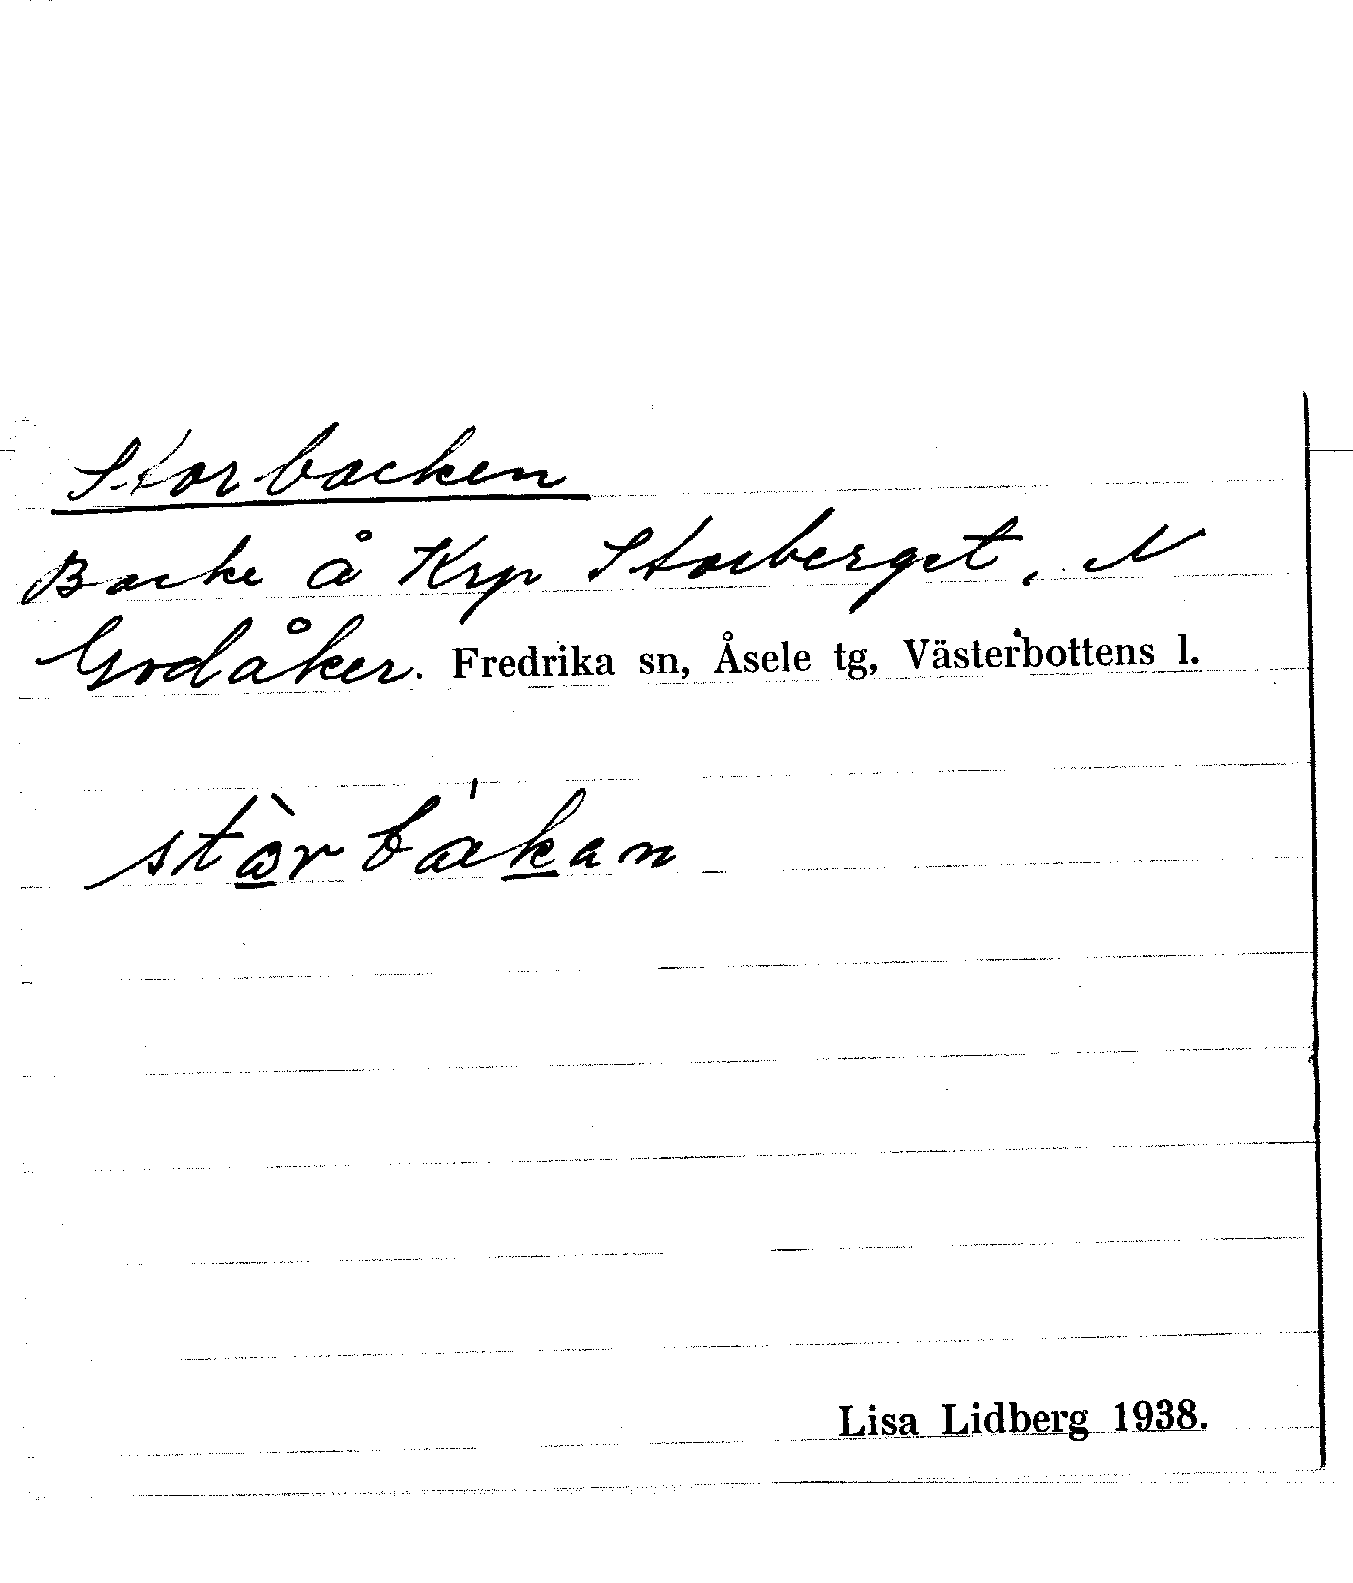 Storbacken
Backe å Krp Storberget, N
Godåker. Fredrika sn, Åsele tg, Västerbottens l.
stòrbákan
Lisa Lidberg 1938.